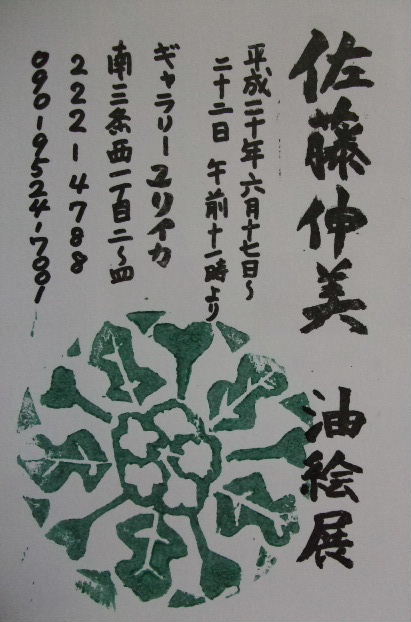 佐藤伸美 油絵展
平成二十年六月十七日〜
二十二日 午前十一時より
ギャラリーユリイカ
南三条西一丁目二〜四
222-4788
090-9524-7001